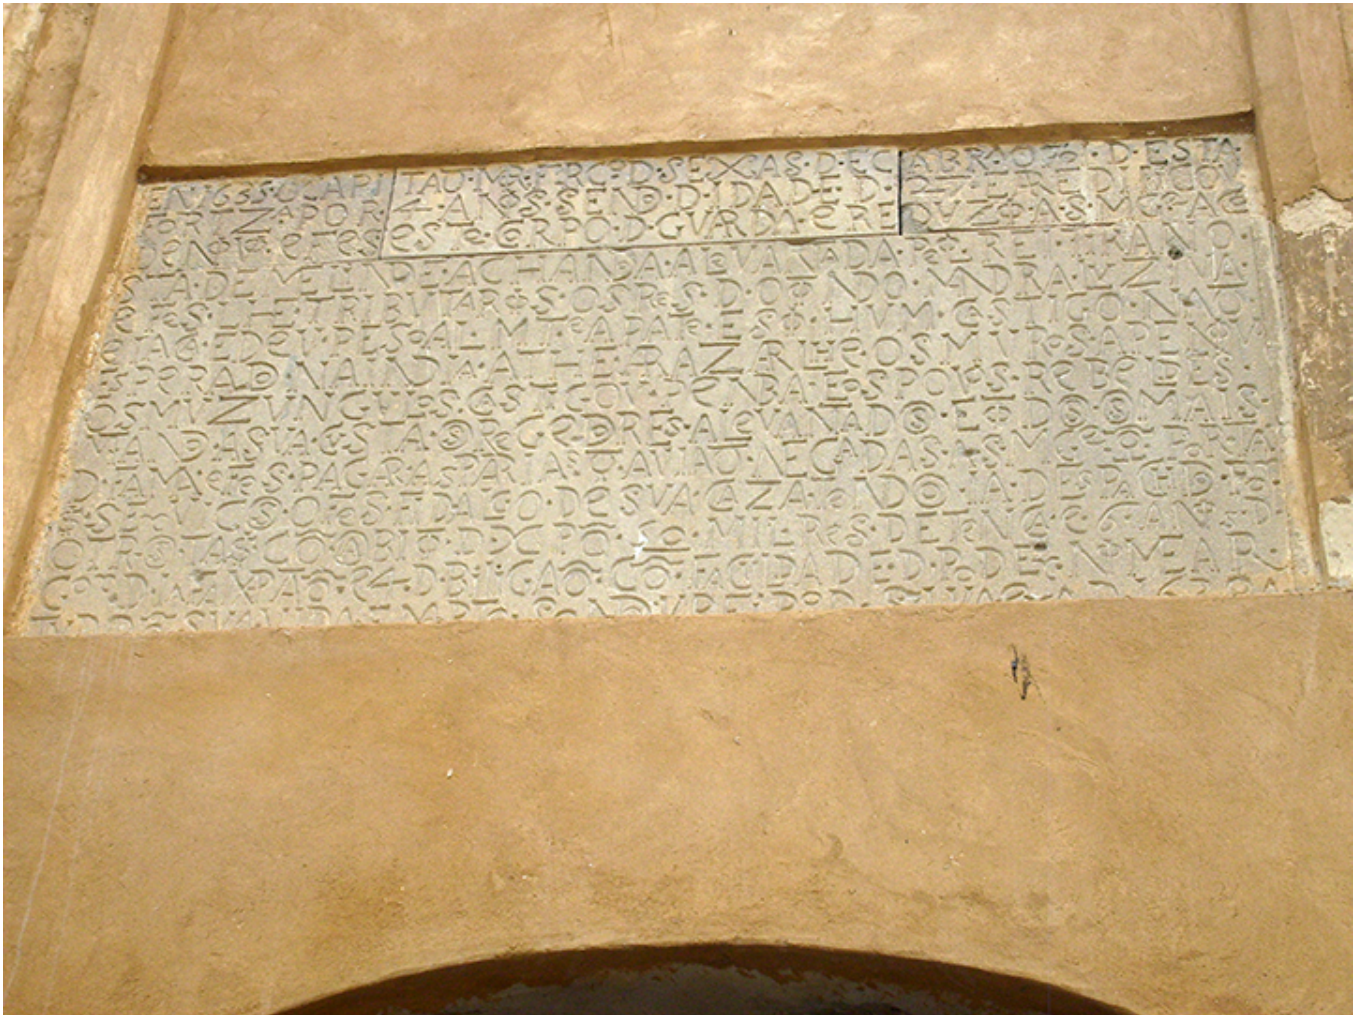 EN 1635 O CAPITAÕ MOR FRCO D SEXAS DE CABRRA O FOI D ESTA
FORTZA POR 4 ANOS SENDO D IDADE D 27 E REDIFICOU
DE NOVO E FES ESTE CORPO D GUARDA E REDVZIO A S MGDE A CO
STA DE MELINDE ACHANDA ALEVANTADA PELO REI TIRANO
E FES LHE TRIBVTARIOS OS REIS D OTONDO MANDRA LVZIVA
E IACA E DEV PESOALMTE A PATE E SIO HVM CASTIGO NÃO
ESPERADO NA INDIA ATHE ARAZAR LHE OS MVROS APENOV
OS MVZVNGVLOS CASTIGOV PENBA E OS POVOS REBELDES
MATANDO A SVA CVSTA OS REGEDORES ALEVANTADOS E TODOS OS MAIS
D FAMA E FES PAGAR AS PARIAS Q AVIAÕ NEGADAS A S MGDE Q POR TA
IS SERVICOS O FES FIDALGO DE SVA CAZA TENDO IA DESPACHADO POR
OVTROS TAIS CÕ O ABITO D XPO CÕ 50 MIL RES DE TENCA E 6 ANOS D
GOR D IAFANAPATAÕ E 4 D BILIGAÕ CÕ FACVLDADE D PODER NOMEAR